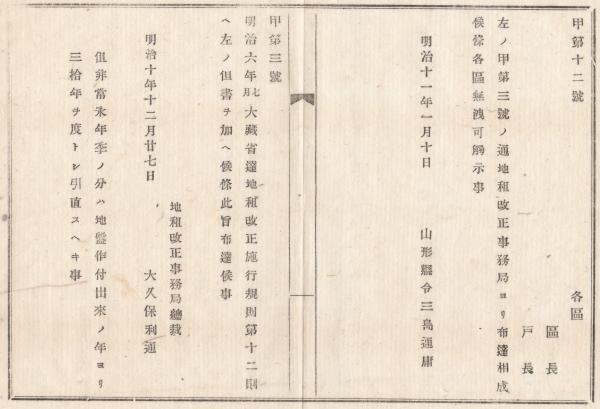 甲第十二號
各區
區長
戸長
左ノ甲第三號ノ通地租改正事務局ヨリ布達相成
候條各區無洩可觸示事
明治十一年一月十日
山形縣令三島通庸
甲第三號
明治六年七月大藏省達地租改正施行規則第十二則
ヘ左ノ但書ヲ加ヘ候條此旨布達候事
地租改正事務局總裁
明治十年十二月廿七日
大久保利通
但非常末年季ノ分ハ地盤作付出來ノ年ヨリ
三拾年ヲ度トシ引直スヘキ事